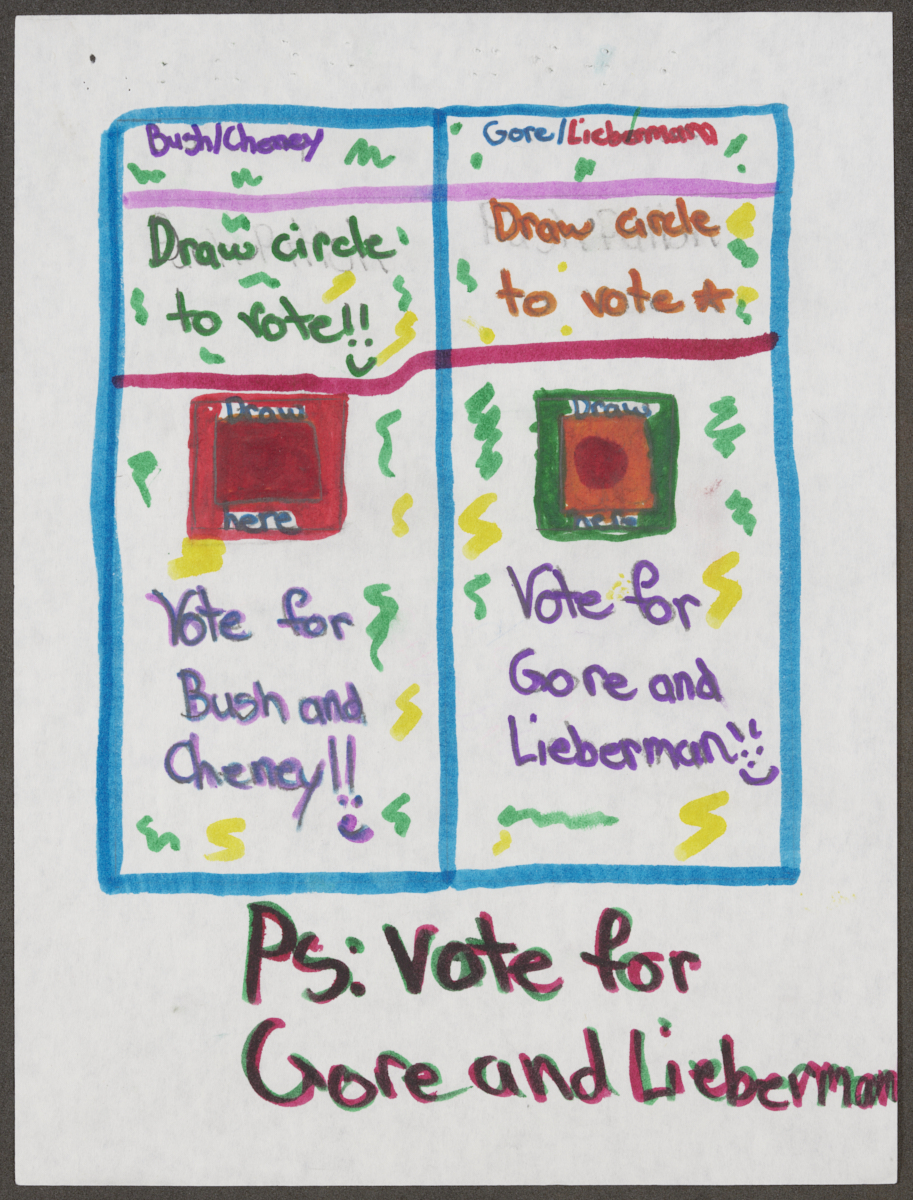 Bush/Cheney
Draw circle
to vote!!
Draw
here
Vote for
Bush and
Cheney!!
Gore/Lieberman
Draw circle
to vote
Draw
here
Vote for
Gore and
Lieberman!!
Ps: Vote for
Gore and Lieberman